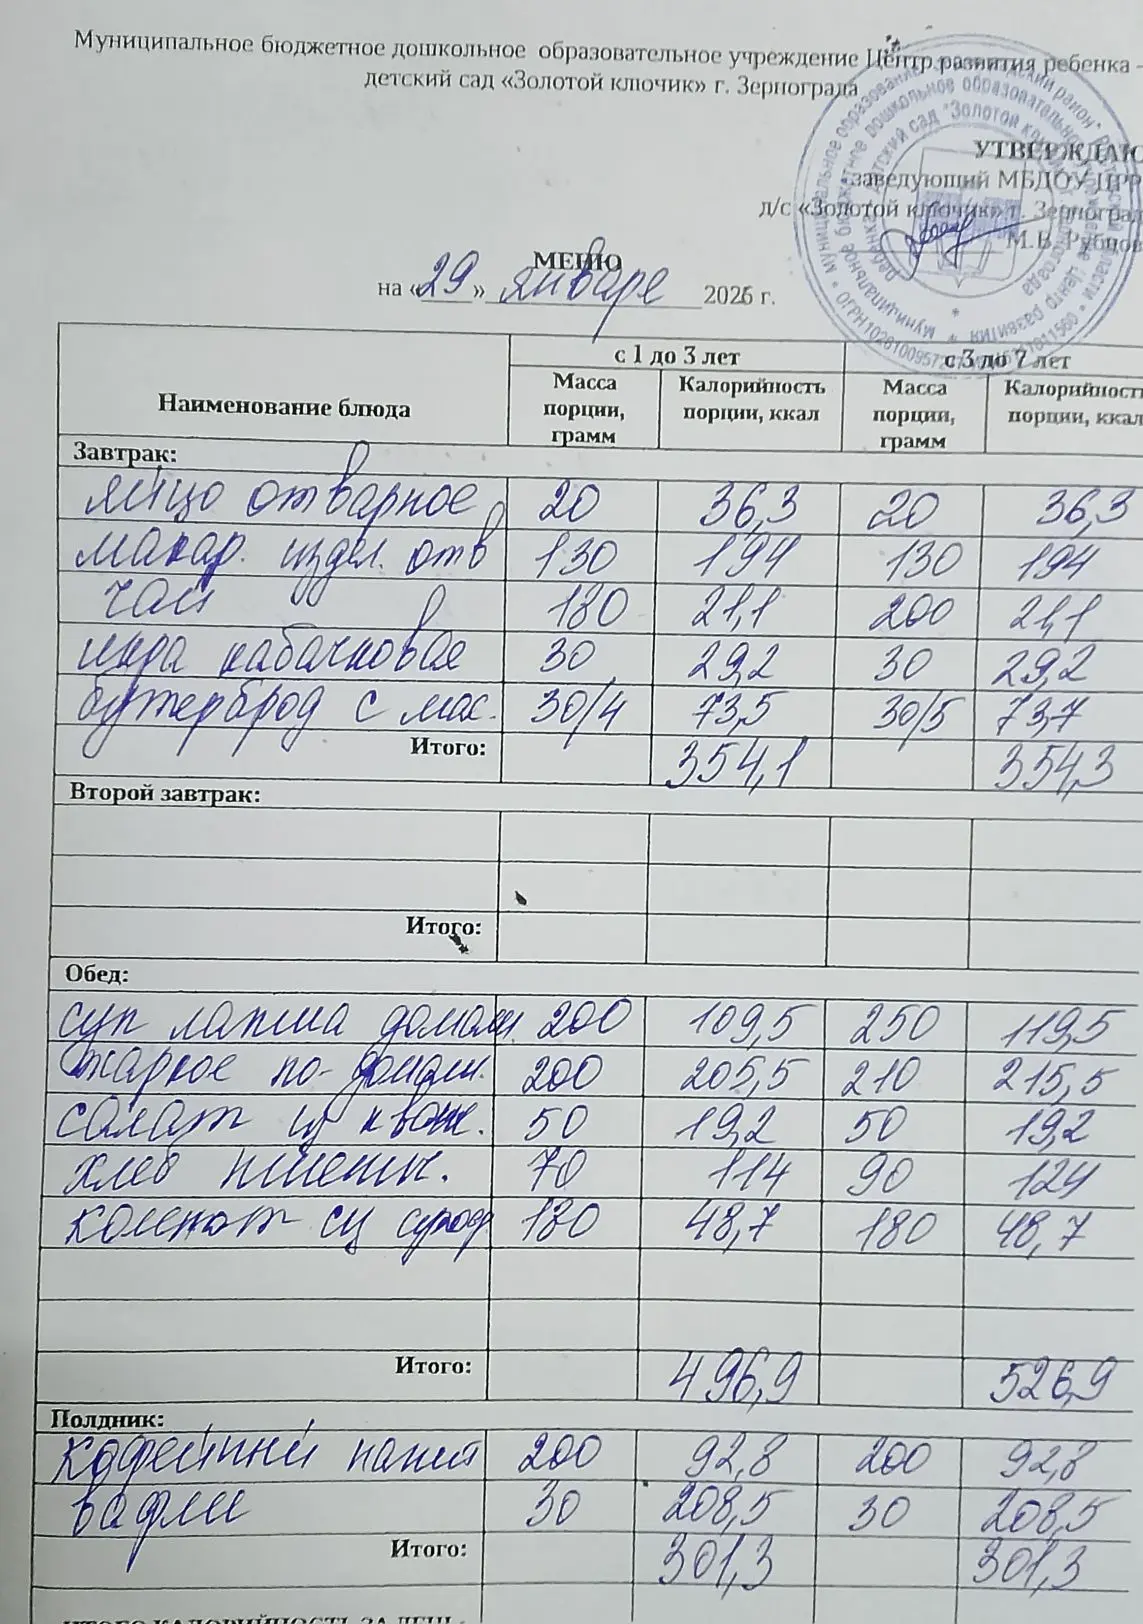 Муниципальное бюджетное дошкольное образовательное учреждение Центр развития ребенка -
детский сад «Золотой ключик» г. Зернограда
УТВЕРЖДАЮ
заведующий МБДОУ ЦРР
д/с «Золотой ключик» г. Зерноград
М.В. Рубцов
МЕНЮ
на «29» январе 2026 г.
Наименование блюда с 1 до 3 лет с 3 до 7 лет
Масса порции, грамм Калорийность порции, ккал Масса порции, грамм Калорийность порции, ккал
Завтрак:
яйцо отварное 20 36,3 20 36,3
макар. издел. отв 130 194 130 194
чай 180 21,1 200 21,1
икра кабачковая 30 29,2 30 29,2
бутерброд с мас. 30/4 73,5 30/5 73,7
Итого: 354,1 354,3
Второй завтрак:
Итого:
Обед:
суп лапша домаш. 200 109,5 250 119,5
жаркое по-домаш. 200 205,5 210 215,5
салат из кваш. 50 19,2 50 19,2
хлеб пшенич. 70 114 90 124
компот из сухофр 180 48,7 180 48,7
Итого: 496,9 526,9
Полдник:
кофейный напит 200 92,8 200 92,8
вафли 30 208,5 30 208,5
Итого: 301,3 301,3
ИТОГО КАЛОРИЙНОСТЬ ЗА ДЕНЬ: